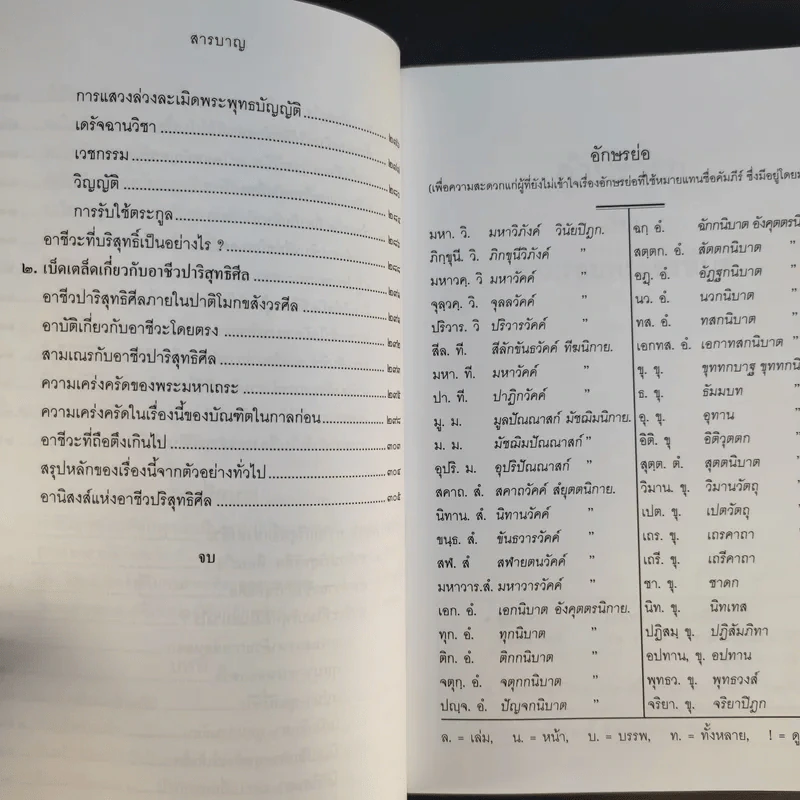 สารบาญ
การแสวงล่วงละเมิดพระพุทธบัญญัติ
เดรัจฉานวิชา
เวชกรรม
วิญญัติ
การรับใช้ตระกูล
อาชีวะที่บริสุทธิ์เป็นอย่างไร ?
๒. เบ็ดเตล็ดเกี่ยวกับอาชีวปาริสุทธิศีล
อาชีวปาริสุทธิศีลภายในปาติโมกขสังวรศีล
อาบัติเกี่ยวกับอาชีวะโดยตรง
สามเณรกับอาชีวปาริสุทธิศีล
ความเคร่งครัดของพระมหาเถระ
ความเคร่งครัดในเรื่องนี้ของบัณฑิตในกาลก่อน
อาชีวะที่ถือตึงเกินไป ๓๐๓
สรุปหลักของเรื่องนี้จากตัวอย่างทั่วไป ๓๐๔
อานิสงส์แห่งอาชีวปริสุทธิศีล ๓๐๕
จบ
อักษรย่อ
(เพื่อความสะดวกแก่ผู้ที่ยังไม่เข้าใจเรื่องอักษรย่อที่ใช้หมายแทนชื่อคัมภีร์ ซึ่งมีอยู่โดยม
มหา. วิ. มหาวิภังค์ วินัยปิฎก. ฉกฺ อํ. ฉักกนิบาต อังคุตตรนิ
ภิกฺขุนี. วิ. ภิกขุนีวิภังค์ ” สตฺตก. อํ. สัตตกนิบาต ”
มหาวคฺ. วิ มหาวัคค์ ” อฏฺ. อํ. อัฏฐกนิบาต ”
จุลฺวคฺ. วิ. จุลลวัคค์ ” นว. อํ. นวกนิบาต ”
ปริวาร. วิ ปริวารวัคค์ ” ทส. อํ. ทสกนิบาต ”
สีล. ที. สีลักขันธวัคค์ ทีฆนิกาย. เอกทส. อํ. เอกาทสกนิบาต ”
มหา. ที. มหาวัคค์ ” ขุ. ขุ. ขุททกบาฐ ขุททกนิ
ปา. ที. ปาฏิกวัคค์ ” ธ. ขุ. ธัมมบท ”
มู. ม. มูลปัณณาสก์ มัชฌิมนิกาย. อุ. ขุ. อุทาน ”
ม. ม. มัชฌิมปัณณาสก์ ” อิติ. ขุ อิติวุตตก ”
อุปริ. ม. อุปริปัณณาสก์ ” สุตฺต. ตํ. สุตตนิบาต ”
สคาถ. สํ. สคาถวัคค์ สํยุตตนิกาย. วิมาน. ขุ. วิมานวัตถุ ”
นิทาน. สํ. นิทานวัคค์ ” เปต. ขุ. เปตวัตถุ ”
ขนฺธ. สํ. ขันธวารวัคค์ ” เถร. ขุ. เถรคาถา ”
สฬ. สํ สฬายตนวัคค์ ” เถรี. ขุ. เถรีคาถา ”
มหาวาร.สํ. มหาวารวัคค์ ” ชา. ขุ. ชาดก ”
เอก. อํ. เอกนิบาต อังคุตตรนิกาย. นิท. ขุ. นิทเทส ”
ทุก. อํ. ทุกนิบาต ” ปฏิสมฺ ขุ. ปฏิสัมภิทา ”
ติก. อํ. ติกกนิบาต ” อปทาน, ขุ. อปทาน ”
จตุกฺ. อํ. จตุกกนิบาต ” พุทธว. ขุ. พุทธวงส์ ”
ปญฺจ. อํ. ปัญจกนิบาต ” จริยา. ขุ. จริยาปิฎก ”
ล. = เล่ม, น. = หน้า, บ. = บรรพ, ท. = ทั้งหลาย, ! = ดู